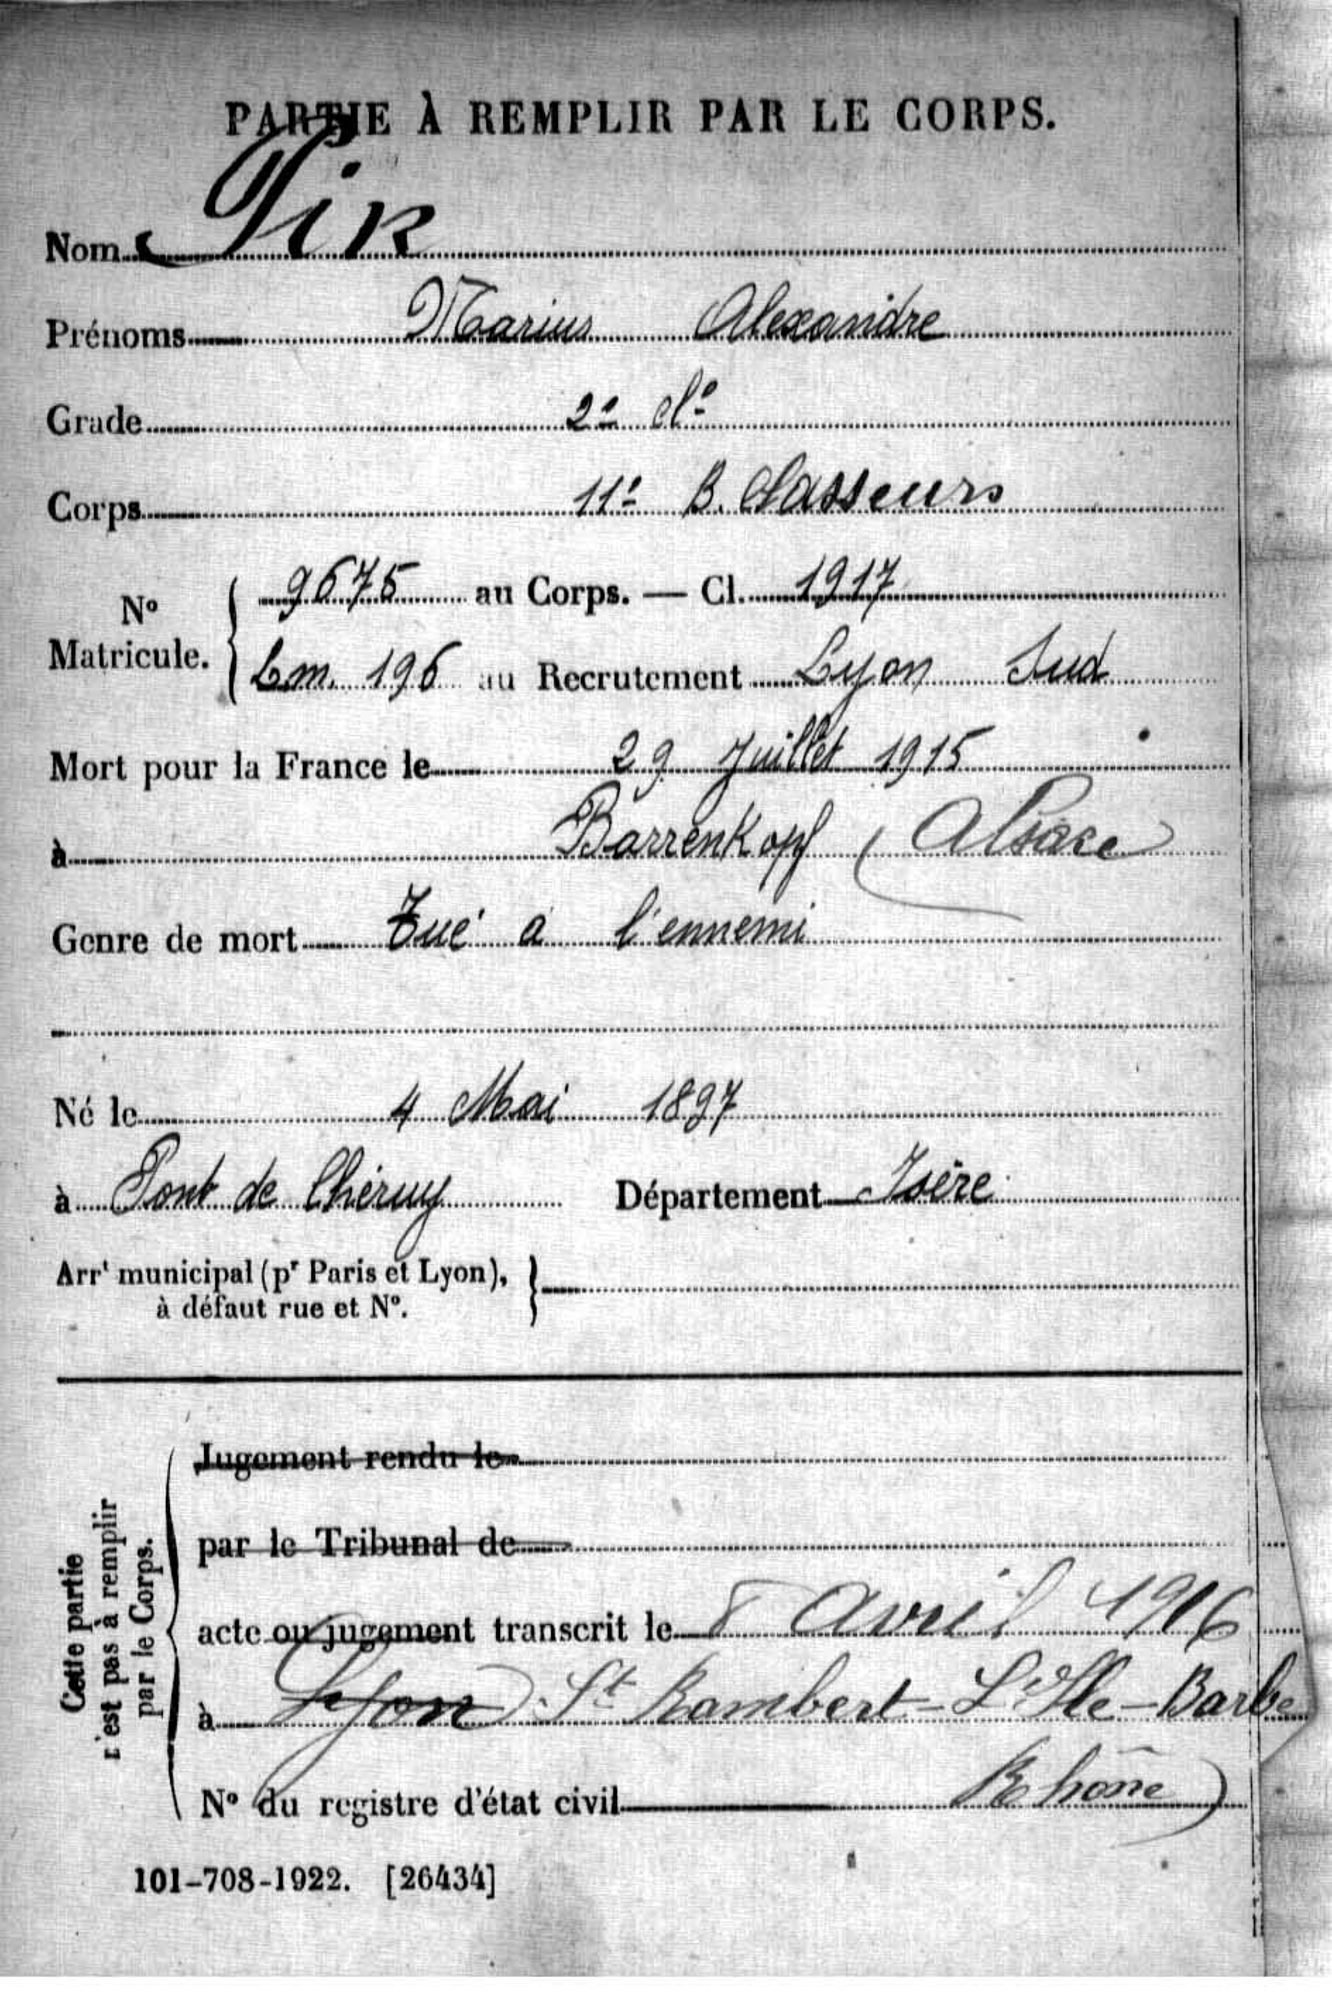 PARTIE À REMPLIR PAR LE CORPS.
Nom Pik
Prénoms Marius Alexandre
Grade 2e cl.e
Corps 11e B. Chasseurs
No Matricule. { 9675 au Corps. — Cl. 1917
Em. 196 au Recrutement Lyon Sud
Mort pour la France le 29 Juillet 1915
à Barrenkopf (Alsace
Genre de mort Tué à l'ennemi
Né le 4 Mai 1897
à Pont de Chéruy Département Isère
Arrt municipal (pr Paris et Lyon), }
à défaut rue et No.
Cette partie
n'est pas à remplir
par le Corps.
Jugement rendu le
par le Tribunal de
acte ou jugement transcrit le 8 Avril 1916
à Lyon St Rambert-L'Ile-Barbe
No du registre d'état civil Rhône)
101-708-1922. [26434]